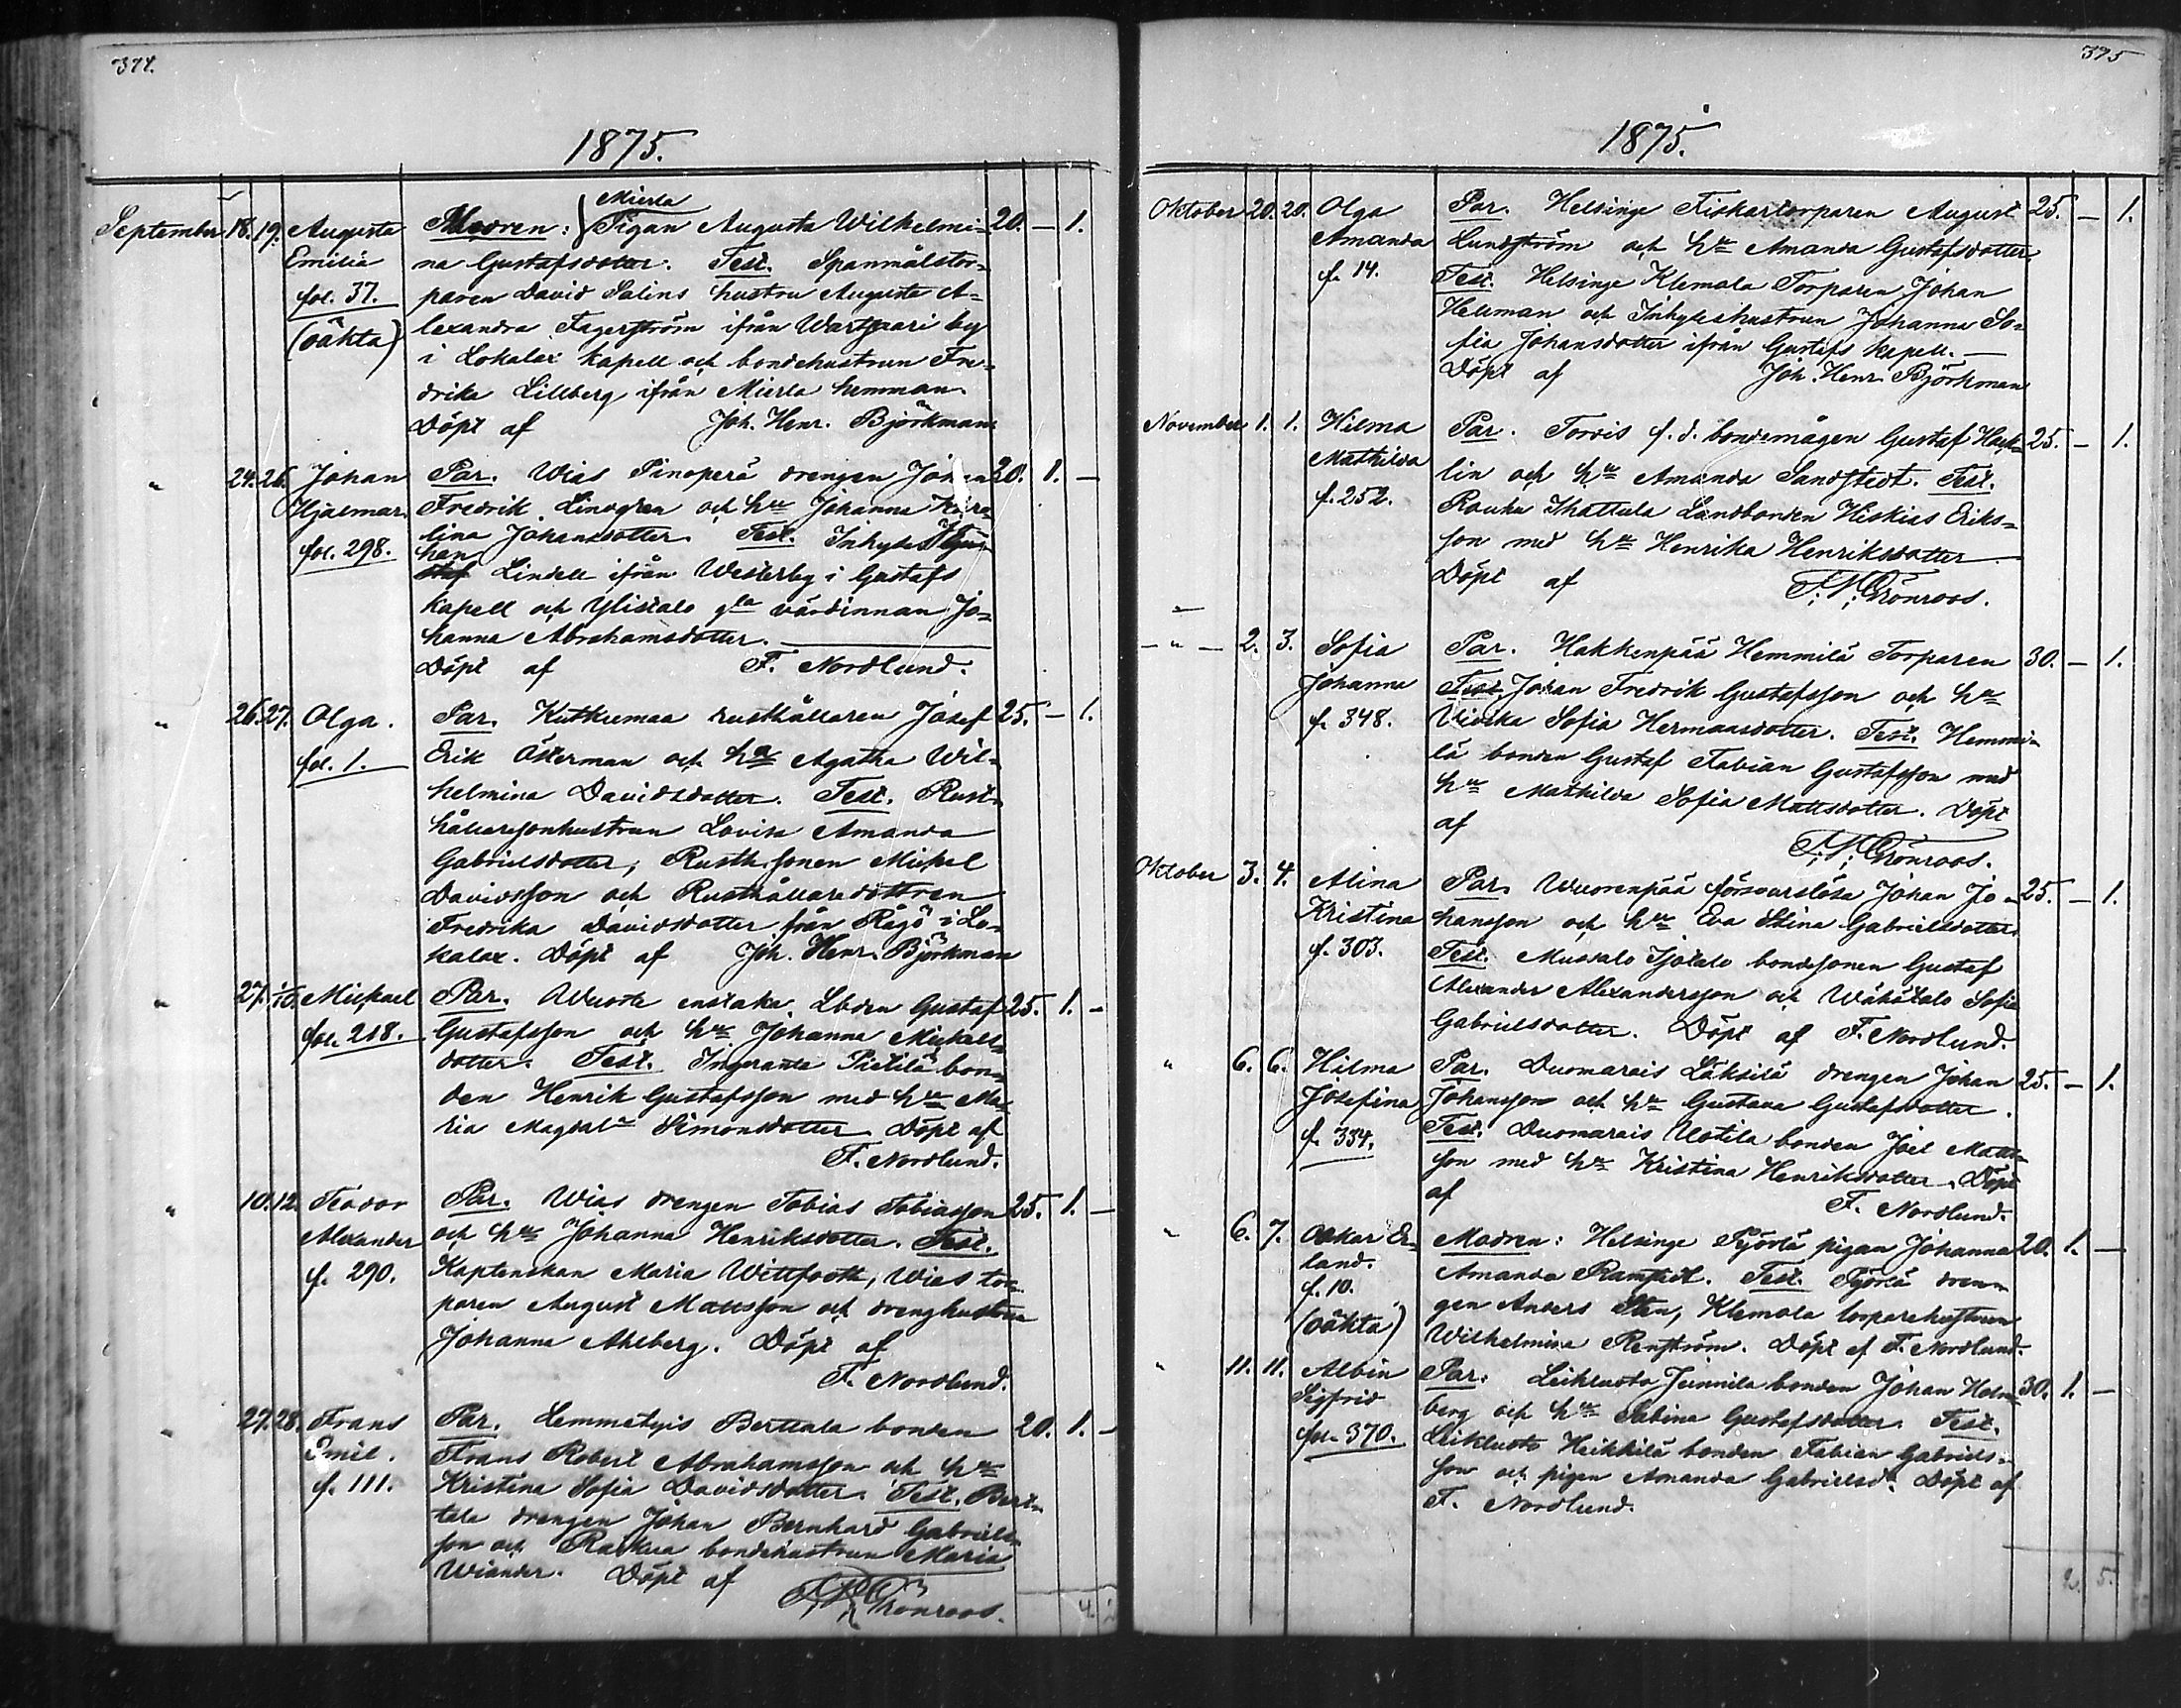 374.
1875.
September 18. 19. Augusta Modren: Mierla Pigan Augusta Wilhelmi- 20. — 1.
Emilia na Gustafsdotter. Test. Spanmålstor-
fol. 37. paren David Salins hustru Augusta A-
(oäkta) lexandra Fagerström ifrån Wartsaari by
i Lokalax kapell och bondehustrun Fre-
drika Lillberg ifrån Mierla hemman.
Döpt af Joh. Henr. Björkman
" 24. 26. Johan Par. Wias Pinoperä drengen Johan 20. 1. —
Hjalmar. Fredrik Lindgren och hru Johanna Karo-
fol. 298. lina Johansdotter. Test. Inhyses
han Lindell ifrån Westerby i Gustafs
kapell och Ylistalo gla värdinnan Jo-
hanna Abrahamsdotter.
Döpt af F. Nordlund.
" 26. 27. Olga. Par. Kutkumaa rusthållaren Josef 25. — 1.
fol. 1. Erik Österman och hu Agatha Wil-
helmina Davidsdotter. Test. Rust-
hållaresonhustrun Lovisa Amanda
Gabrielsdotter, Rusth.sonen Mickel
Davidsson och Rusthållaredottren
Fredrika Davidsdotter från Rägö i Lo-
kalax. Döpt af Joh. Henr. Björkman
" 27. Michael Par. enstaka Lbden Gustaf 25. 1. —
fol. 218. Gustafsson och hru Johanna Mickels-
dotter. Test. Ingeranta Pietilä bon-
den Henrik Gustafsson med hru Ma-
ria Magdal. Simonsdotter Döpt af
F. Nordlund.
" 10. 12. Teodor Par. Wias drengen Tobias Tobiasson 25. 1. —
Alexander och hru Johanna Henriksdotter. Test.
f. 290. Kaptenskan Maria Wittfooth, Wias tor-
paren August Mattsson och drenghustrun
Johanna Ahlberg. Döpt af
F. Nordlund.
" 27. 28. Frans Par. Lemmetyis Berttala bonden 20. 1. —
Emil. Frans Robert Abrahamsson och hru
f. 111. Kristina Sofia Davidsdotter. Test. Bert-
tala drengen Johan Bernhard Gabriels-
son och bondehustrun Maria
Wiander. Döpt af Grönroos.
4.
375
1875.
Oktober 20. 20. Olga Par. Helsinge Fiskartorparen August 25. — 1.
Amanda Lundström och hru Amanda Gustafsdotter.
f. 14. Test. Helsinge Klemola Torparen Johan
Hellman och Inhyseshustrun Johanna So-
fia Johansdotter ifrån Gustafs kapell. —
Döpt af Joh. Henr. Björkman
November 1. 1. Hilma Par. Torvis f. d. bondemågen Gustaf Hack- 25. — 1.
Mathilda lin och hru Amanda Sandstedt. Test.
f. 252. Rauhu Ihattula Landbonden Hiskias Eriks-
son med hru Henrika Henriksdotter
Döpt af Grönroos.
— " — 2. 3. Sofia Par. Hakkenpää Hemmilä Torparen 30. — 1.
Johanna Johan Fredrik Gustafsson och hru
f. 348. Vivika Sofia Hermansdotter. Test. Hemmi-
lä bonden Gustaf Fabian Gustafsson med
hru Mathilda Sofia Mattsdotter. Döpt
af Grönroos.
Oktober 3. 4. Alina Par. Wuorenpää försvarslösa Johan Jo- 25. — 1.
Kristina hansson och hru Eva Stina Gabrielsdotter.
f. 303. Test. Mussalo Isotalo bondesonen Gustaf
Alexander Alexandersson och Wähätalo Sofia
Gabrielsdotter. Döpt af F. Nordlund.
" 6. 6. Hilma Par. Duomarais Läksilä drengen Johan 25. — 1.
Josefina Johansson och hru Gustava Gustafsdotter.
f. 334. Test. Duomarais Uotila bonden Joel Matts-
son med hru Kristina Henriksdotter. Döpt
af F. Nordlund.
" 6. 7. Oskar Er- Modren: Helsinge Pyörlä pigan Johanna 20. 1. —
land. Amanda Ramstedt. Test. Pyörlä dren-
f. 10. gen Anders Sten, Klemola torparehustrun
(oäkta) Wilhelmina Renström. Döpt af F. Nordlund.
" 11. 11. Albin Par. Leikluoto Junnila bonden Johan Holm- 30. 1. —
Sigfrid berg och hru Sabina Gustafsdotter. Test.
fol. 370. Leikluoto Heikkilä bonden Fabian Gabriels-
son och pigan Amanda Gabrielsd. Döpt af
F. Nordlund.
2. 5.